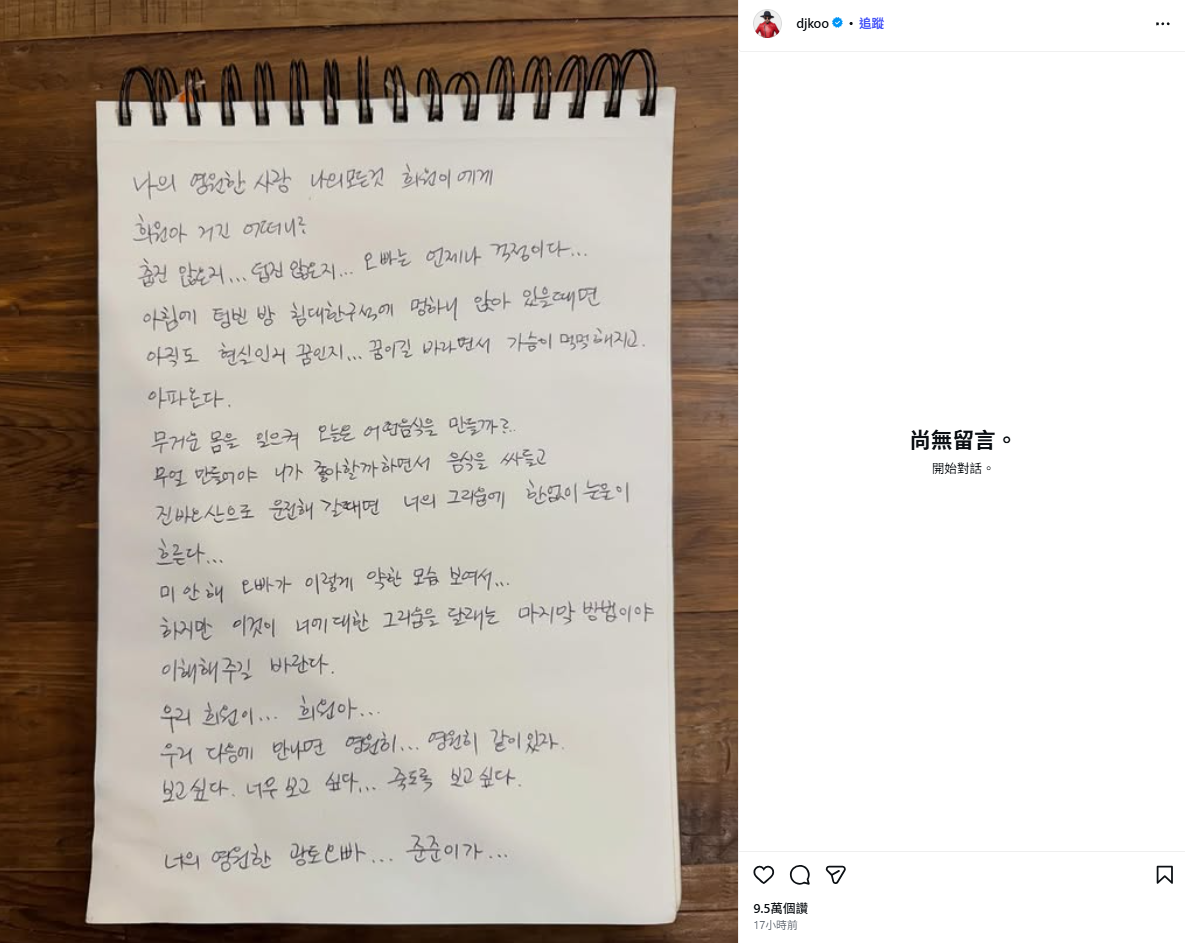 나의 영원한 사랑 나의모든것 희원이에게
희원아 거긴 어떠니?
춥진 않은지... 덥진 않은지... 오빠는 언제나 걱정이다...
아침에 텅빈 방 침대한구석에 멍하니 앉아 있을때면
아직도 현실인지 꿈인지... 꿈이길 바라면서 가슴이 먹먹해지고.
아파온다.
무거운 몸을 일으켜 오늘은 어떤음식을 만들까?..
무얼 만들어야 니가 좋아할까하면서 음식을 싸들고
진바오산으로 운전해 갈때면 너의 그리움에 한없이 눈물이
흐른다...
미안해 오빠가 이렇게 약한 모습 보여서...
하지만 이것이 너에대한 그리움을 달래는 마지막 방법이야
이해해주길 바란다.
우리 희원이... 희원아...
우리 다음에 만나면 영원히... 영원히 같이있자.
보고싶다. 너무 보고 싶다... 죽도록 보고싶다.
너의 영원한 광토오빠... 준준이가...
djkoo • 追蹤
尚無留言。
開始對話。
9.5萬個讚
17小時前